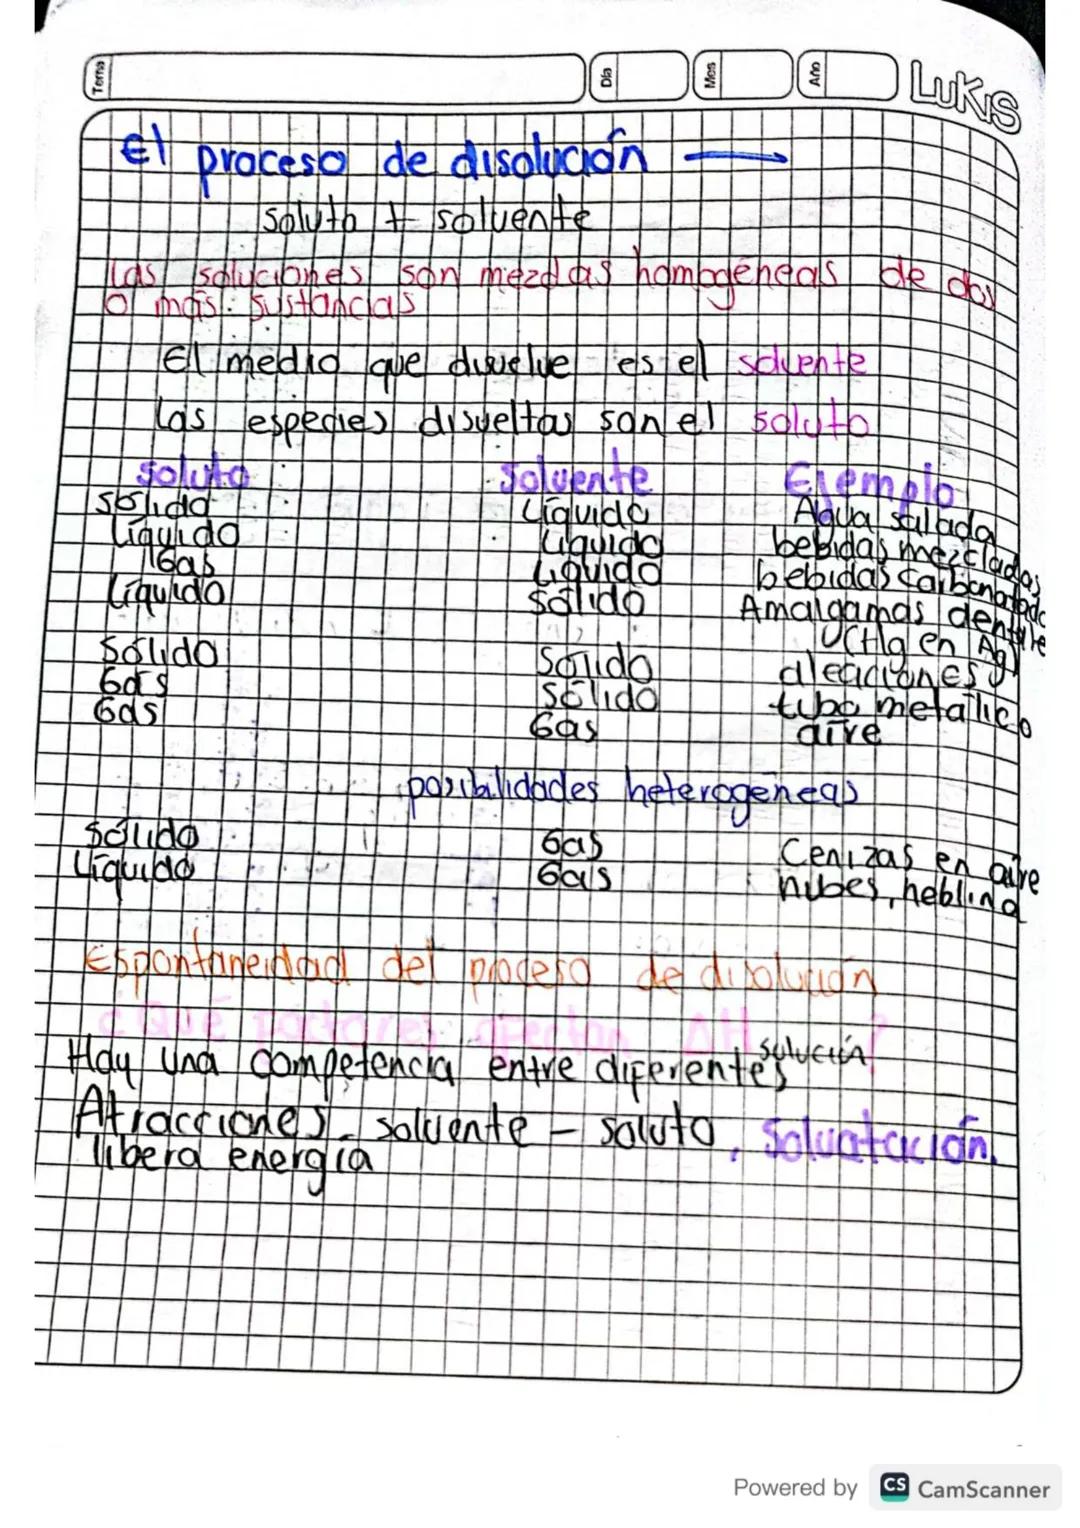 Tema Día Mes Año LUKIS
El proceso de disolución →
soluto + solvente
Las soluciones son mezclas homogéneas de dos
o más sustancias
El medio que disuelve es el solvente
Las especies disueltas son el soluto
soluto Solvente Ejemplo
sólido Líquido Agua salada
Líquido Líquido bebidas mezcladas
Gas Líquido bebidas carbonatada
Líquido Sólido Amalgamas dentale
(Hg en Ag)
Sólido Sólido aleaciones
Gas Sólido tubo metálico
Gas Gas aire
posibilidades heterogéneas
Sólido Gas Cenizas en aire
Líquido Gas nubes, neblina
Espontaneidad del proceso de disolución
¿Qué factores afectan ΔH solución?
Hay una competencia entre diferentes
Atracciones. solvente - soluto, Solvatación.
libera energía
Powered by CS CamScanner